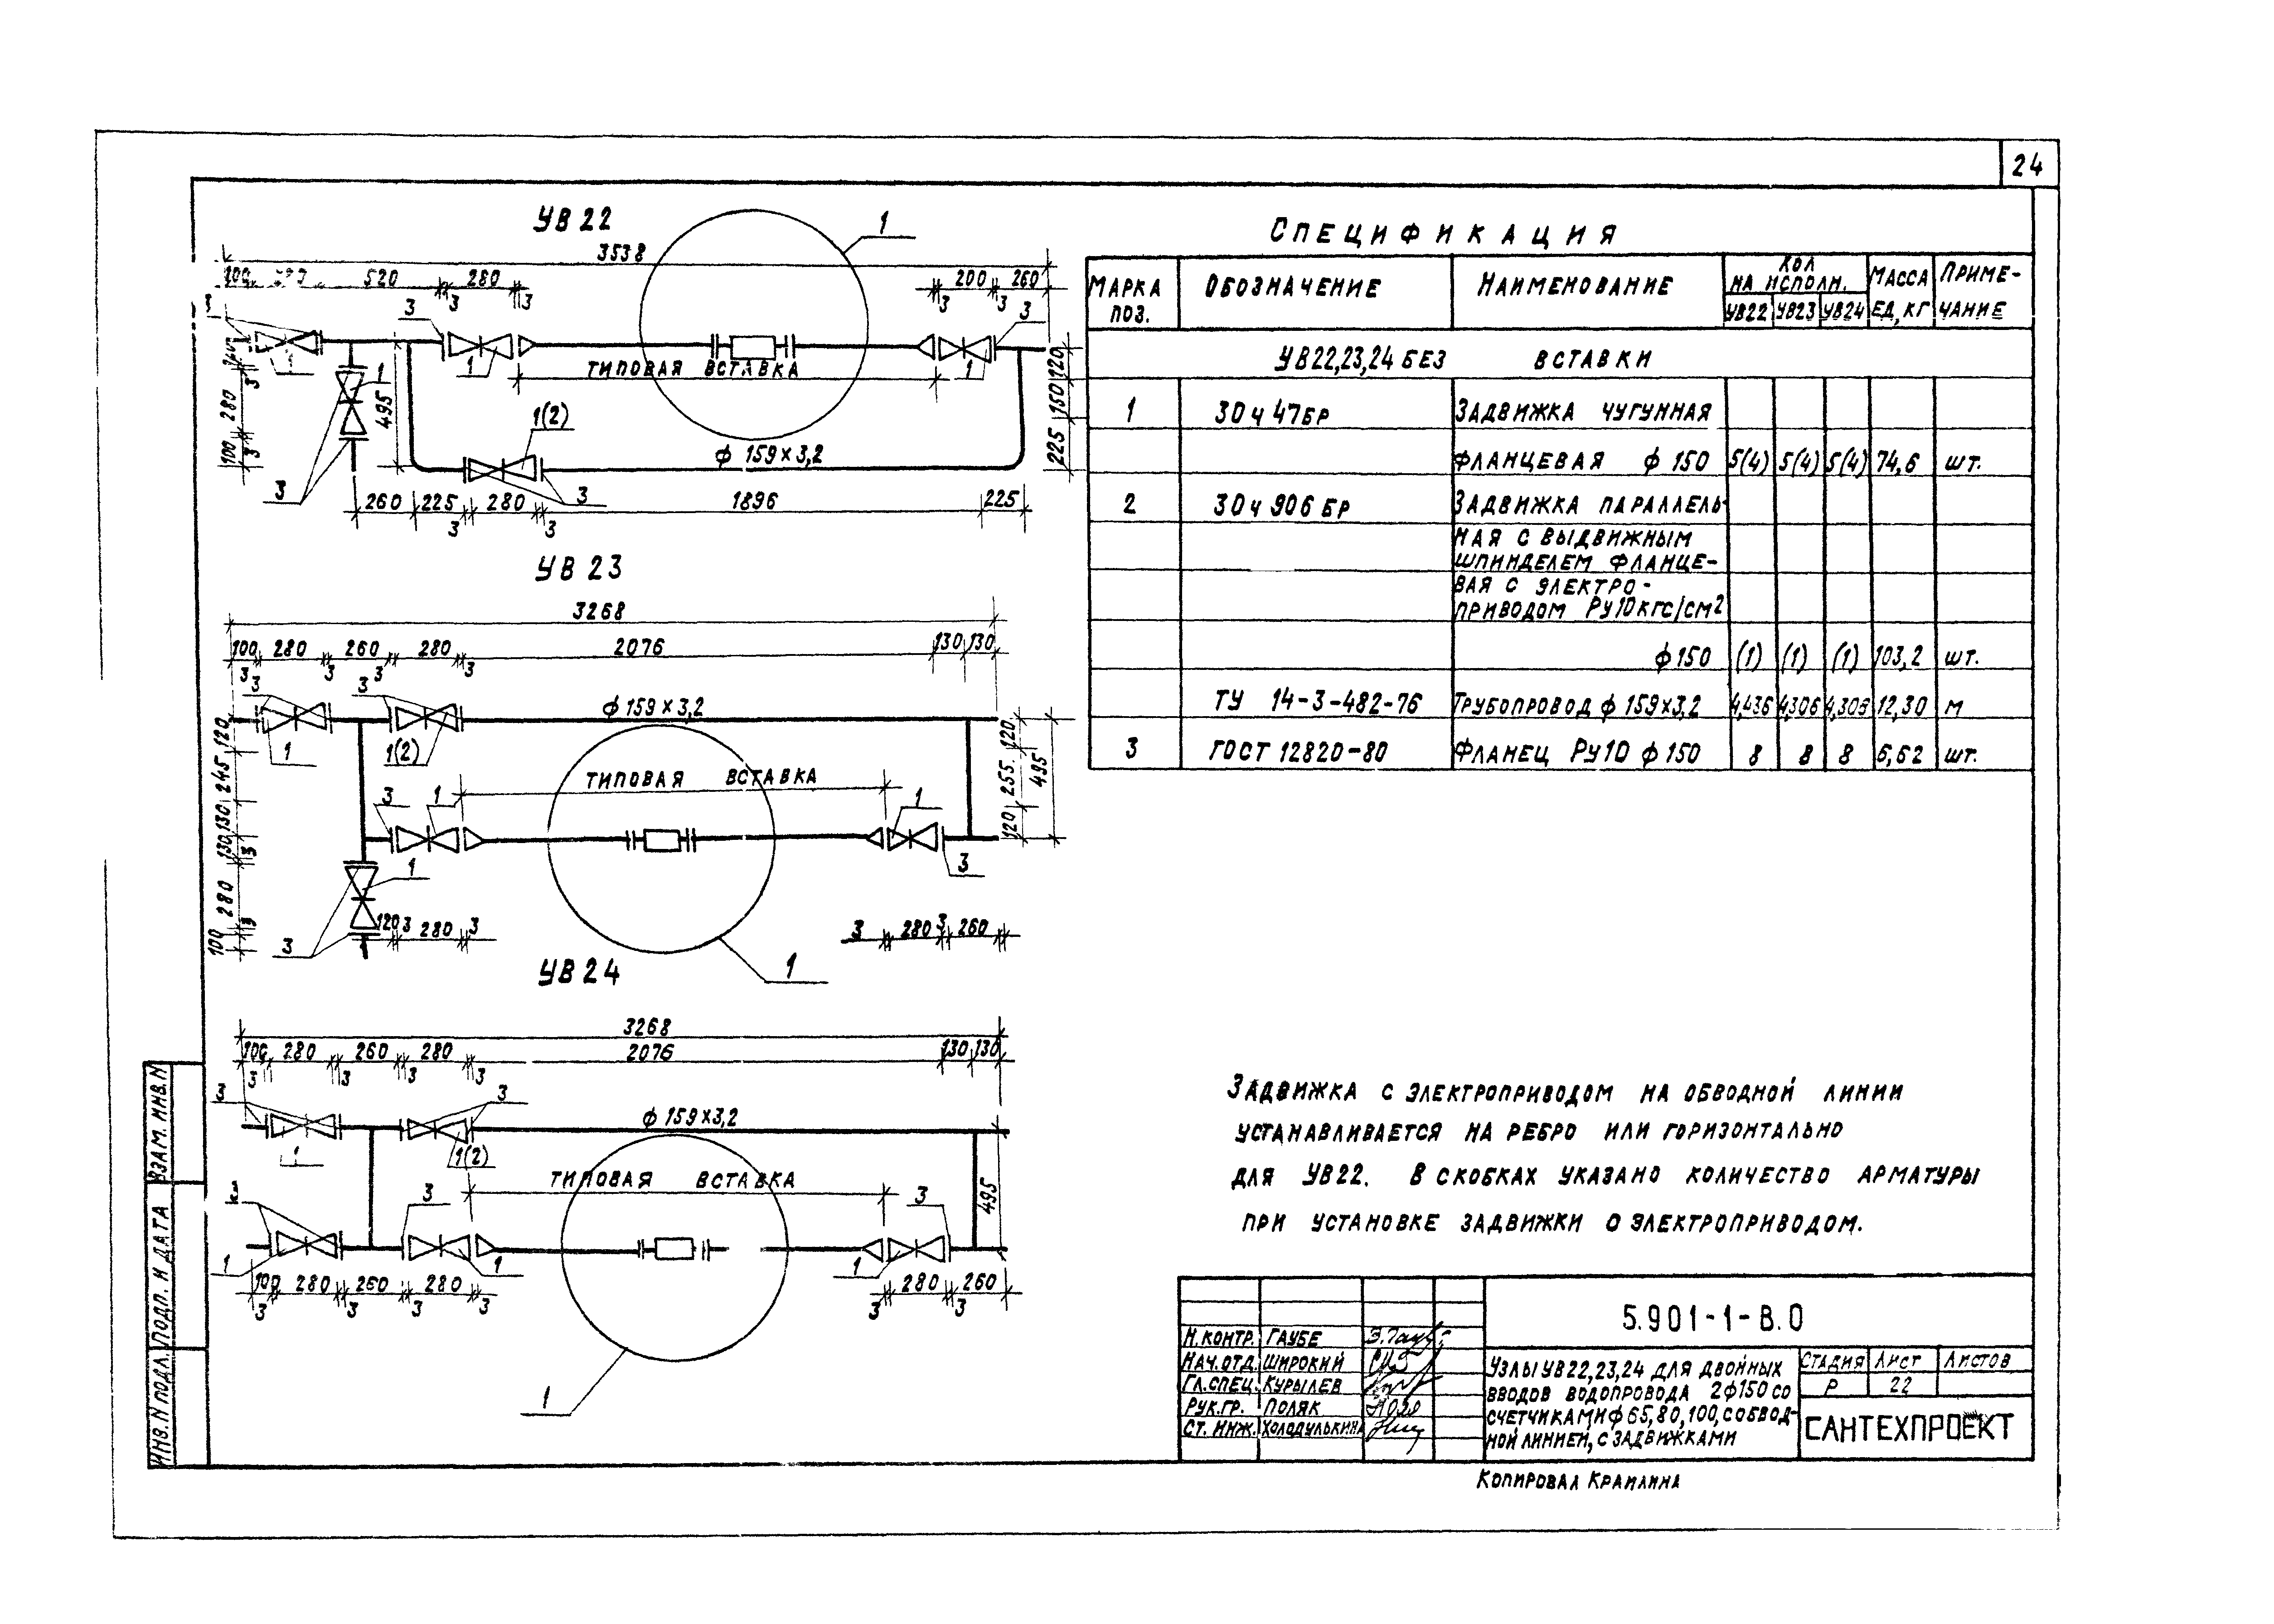 24
УВ 22
1
3538
100 520 280 3 3 3 200 3 260
3 3 3
1 1 1
ТИПОВАЯ ВСТАВКА
1
280 3 100 3
495
1(2)
ф 159×3,2
120
150
225
3 3
260 225 3 280 3 1896 225
УВ 23
3268
100 3 280 3 260 3 280 3 2076 130 130
3 3
ф 159×3,2
1 1(2)
ТИПОВАЯ ВСТАВКА
3 1 1
120 245 130 130 3 280 3 100
120 255 120 495
1 3
3
120 3 280 3
3 280 3 260
1
УВ 24
3268
100 3 280 3 260 3 280 3 2076 130 130
3 3
ф 159×3,2
1 1(2)
ТИПОВАЯ ВСТАВКА
495
3 3 3
1 1 1
100 3 280 3 260 3 280 3
3 280 3 260
1
СПЕЦИФИКАЦИЯ
МАРКА ПОЗ. ОБОЗНАЧЕНИЕ НАИМЕНОВАНИЕ КОЛ НА ИСПОЛН. МАССА ЕД, КГ ПРИМЕ-ЧАНИЕ
УВ22 УВ23 УВ24
УВ22,23,24 БЕЗ ВСТАВКИ
1 30 ч 47 БР ЗАДВИЖКА ЧУГУННАЯ
ФЛАНЦЕВАЯ ф 150 5(4) 5(4) 5(4) 74,6 шт.
2 30 ч 906 БР ЗАДВИЖКА ПАРАЛЛЕЛЬ-
НАЯ С ВЫДВИЖНЫМ
ШПИНДЕЛЕМ ФЛАНЦЕ-
ВАЯ С ЭЛЕКТРО-
ПРИВОДОМ РУ10КГС/СМ²
ф 150 (1) (1) (1) 103,2 шт.
ТУ 14-3-482-76 ТРУБОПРОВОД ф 159×3,2 4,436 4,306 4,306 12,30 М
3 ГОСТ 12820-80 ФЛАНЕЦ РУ10 ф 150 8 8 8 6,62 шт.
ЗАДВИЖКА С ЭЛЕКТРОПРИВОДОМ НА ОБВОДНОЙ ЛИНИИ
УСТАНАВЛИВАЕТСЯ НА РЕБРО ИЛИ ГОРИЗОНТАЛЬНО
ДЛЯ УВ22. В СКОБКАХ УКАЗАНО КОЛИЧЕСТВО АРМАТУРЫ
ПРИ УСТАНОВКЕ ЗАДВИЖКИ С ЭЛЕКТРОПРИВОДОМ.
5.901-1-В.0
Н.КОНТР. ГАУБЕ
НАЧ.ОТД. ШИРОКИЙ
ГЛ.СПЕЦ. КУРЫЛЕВ
РУК.ГР. ПОЛЯК
СТ. ИНЖ. ХОЛОДУЛЬКИНА
УЗЛЫ УВ22,23,24 ДЛЯ ДВОЙНЫХ
ВВОДОВ ВОДОПРОВОДА 2ф150 СО
СЧЕТЧИКАМИ ф 65,80,100, С ОБВОД-
НОЙ ЛИНИЕЙ, С ЗАДВИЖКАМИ
СТАДИЯ ЛИСТ ЛИСТОВ
Р 22
САНТЕХПРОЕКТ
КОПИРОВАЛ КРАИЛИНА
ВЗАМ. ИНВ. N
ПОДП. И ДАТА
ИНВ. N ПОДЛ.